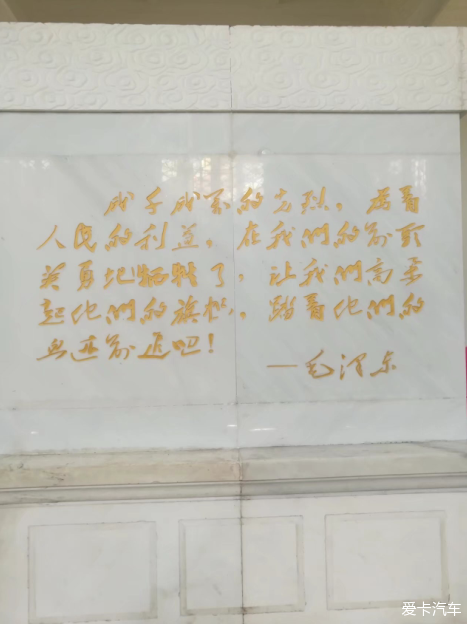 成千成万的先烈，为着
人民的利益，在我們的前头
英勇地牺牲了，让我們高举
起他們的旗帜，踏着他們的
血迹前进吧！
—毛泽东
爱卡汽车